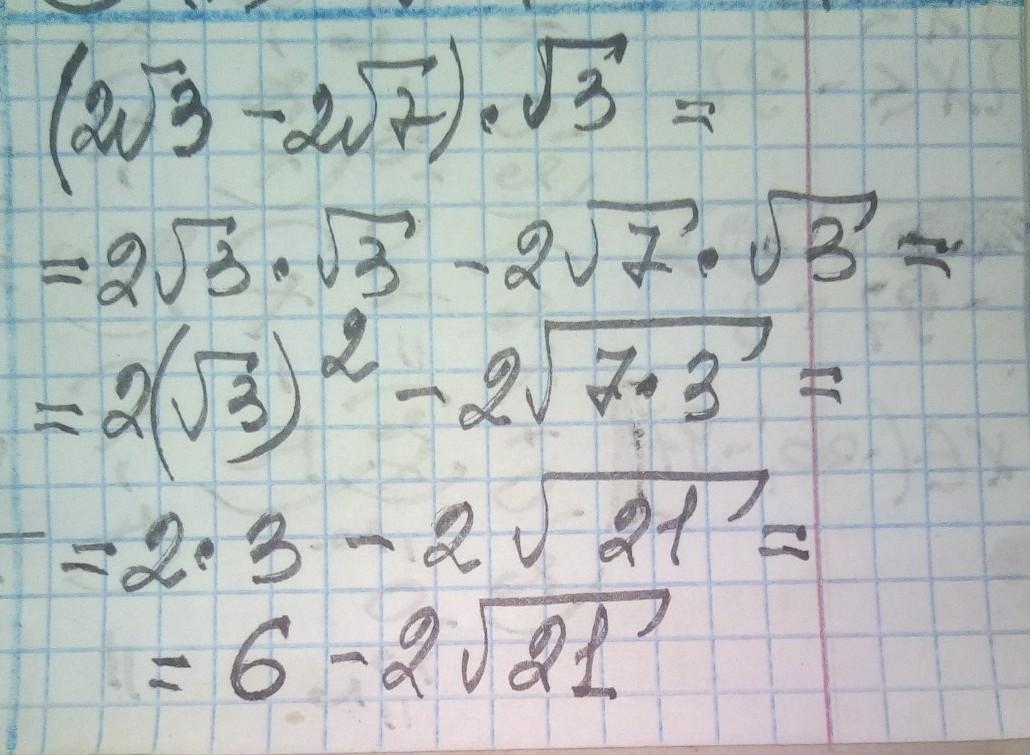 (2√3 - 2√7) · √3 =
= 2√3 · √3 - 2√7 · √3 =
= 2(√3)² - 2√(7·3) =
= 2 · 3 - 2√21 =
= 6 - 2√21